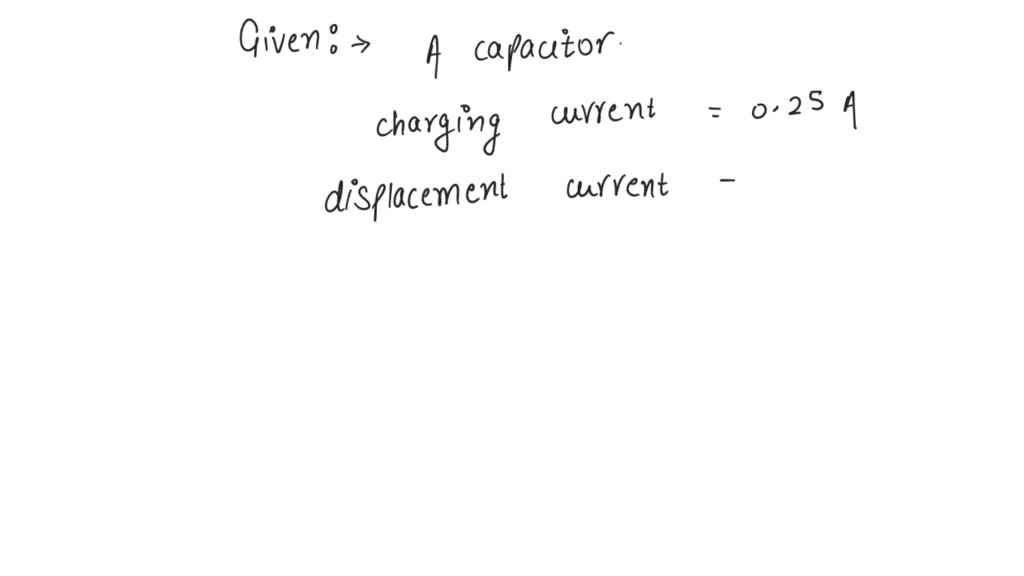 Given:→ A capacitor.
charging current = 0.25 A
displacement current -